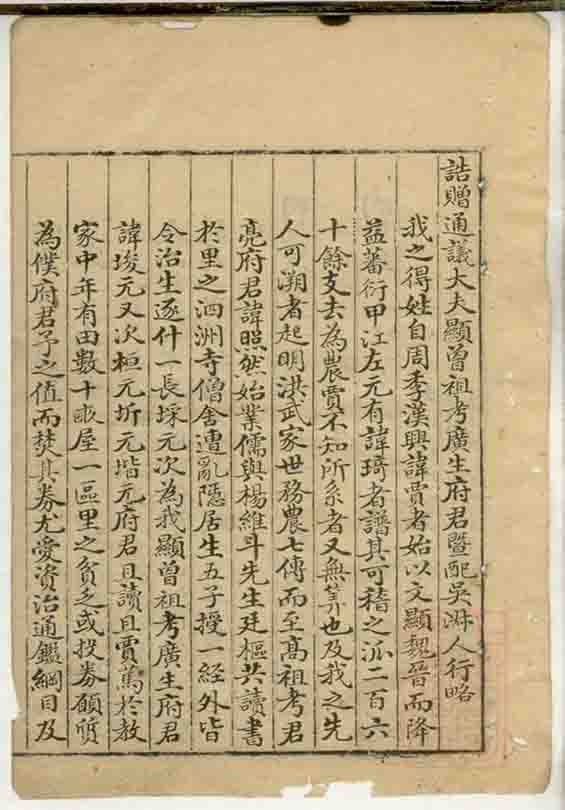 誥贈通議大夫顯曾祖考廣生府君暨配吳淋人行略
我之得姓自周季漢興諱賈者始以文顯魏晉而降
益蕃衍甲江左元有諱琦者譜其可稽之派二百六
十餘支去為農賈不知所系者又無筭也及我之先
人可溯者起明洪武家世務農七傳而至高祖考君
亮府君諱照然始業儒與楊維斗先生廷樞共讀書
於里之泗洲寺僧舍遭亂隱居生五子授一經外皆
令治生逐什一長埰元次為我顯曾祖考廣生府君
諱埈元又次桓元圻元堦元府君且讀且賈篤於教
家中年有田數十畝屋一區里之貧乏或投券願質
為僕府君予之值而焚其券尤愛資治通鑑綱目及